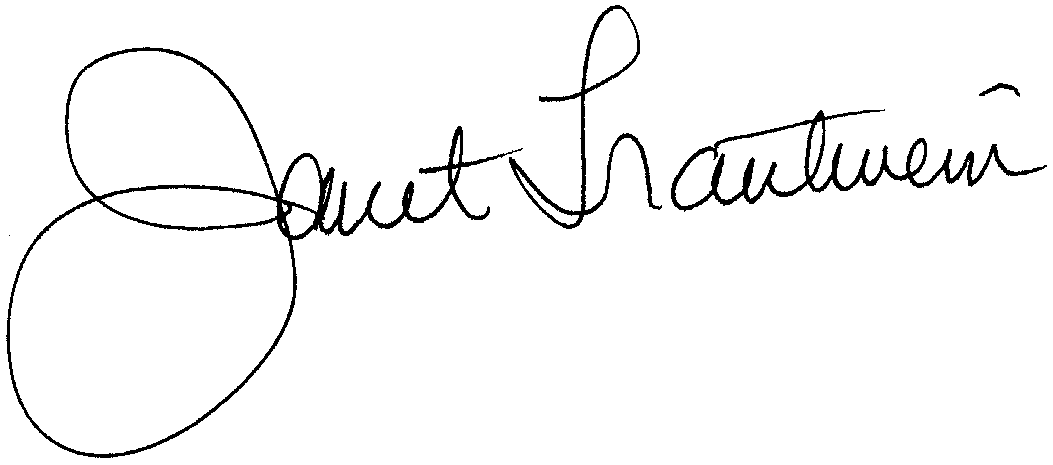 Janet Trautwein